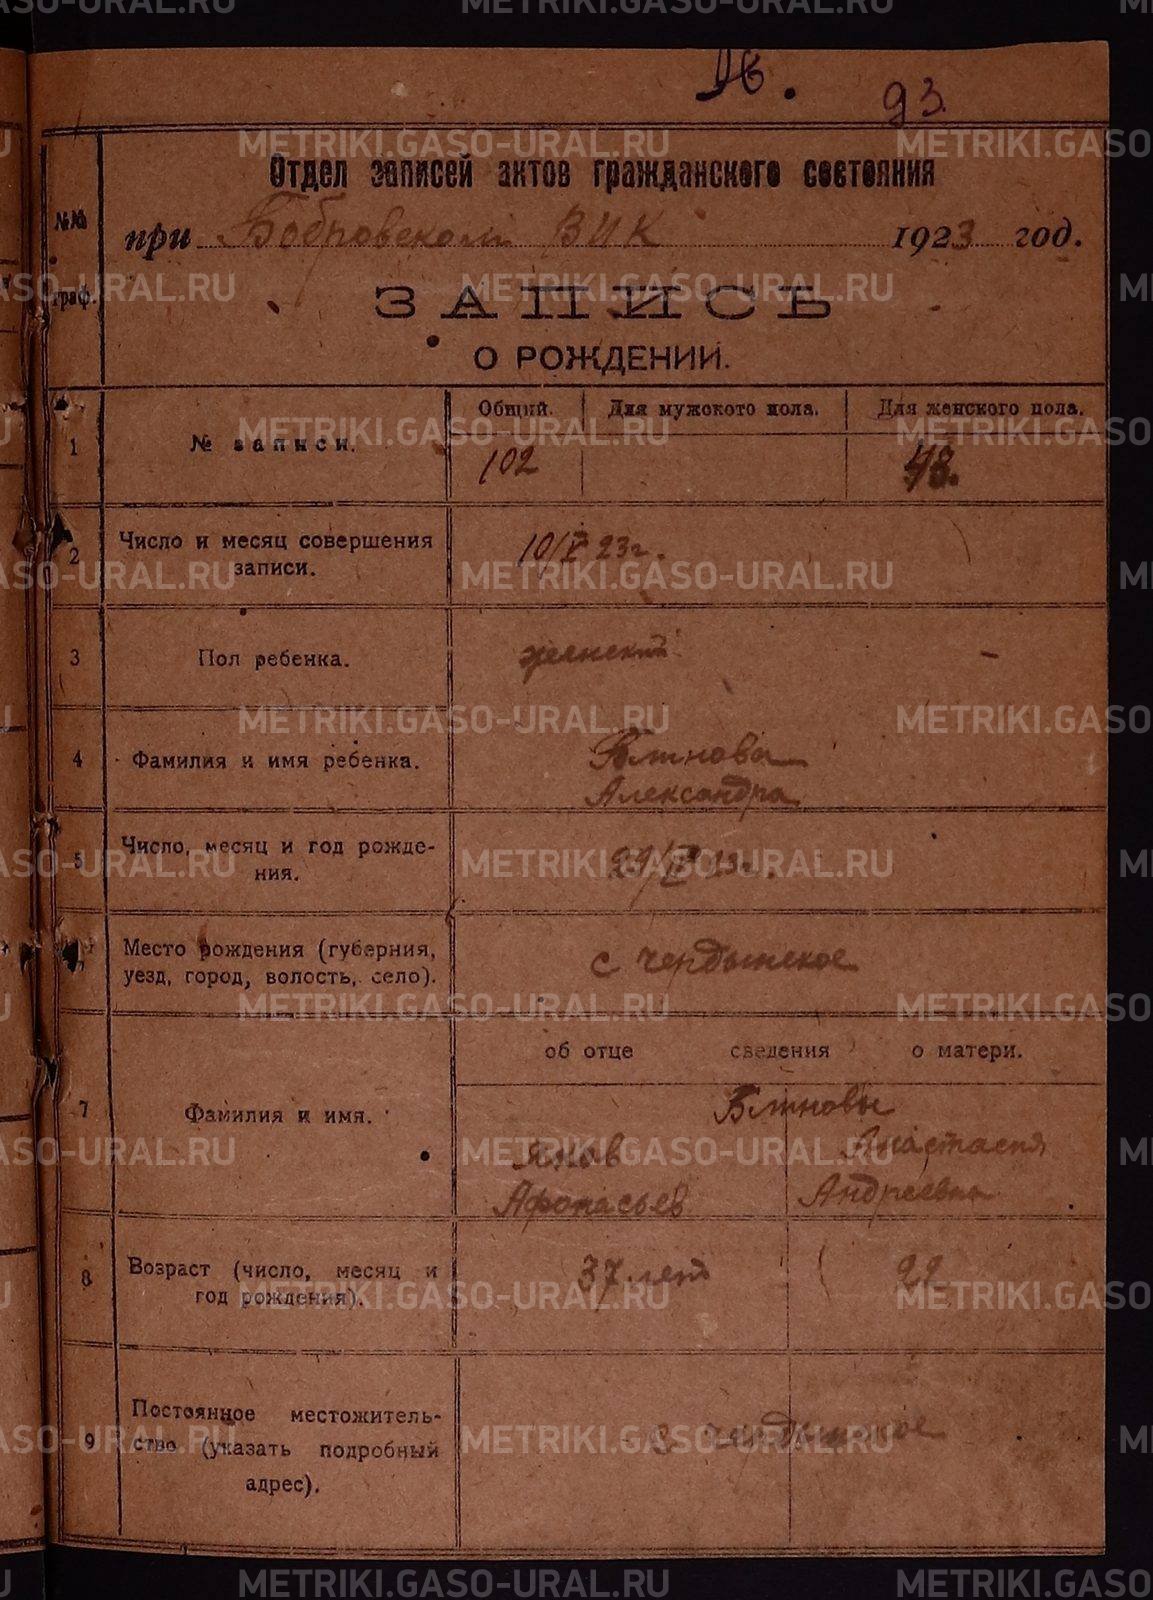 93.
Отдел записей актов гражданского состояния
№№ граф.
при Бобровском ВИК 1923 год.
ЗАПИСЬ
О РОЖДЕНИИ.
1 № записи. Общий. Для мужского пола. Для женского пола.
102 48.
2 Число и месяц совершения записи. 10/V 23г.
3 Пол ребенка. женский
4 Фамилия и имя ребенка. Блинова
Александра
5 Число, месяц и год рожде-
ния. 23г.
Место рождения (губерния,
уезд, город, волость, село). с Чердынское
об отце сведения о матери.
7 Фамилия и имя. Блиновы
Яков Анастасия
Афонасьев Андреевна
8 Возраст (число, месяц и
год рождения). 37 лет 22
9 Постоянное местожитель-
ство (указать подробный
адрес). с Чердынское
METRIKI.GASO-URAL.RU